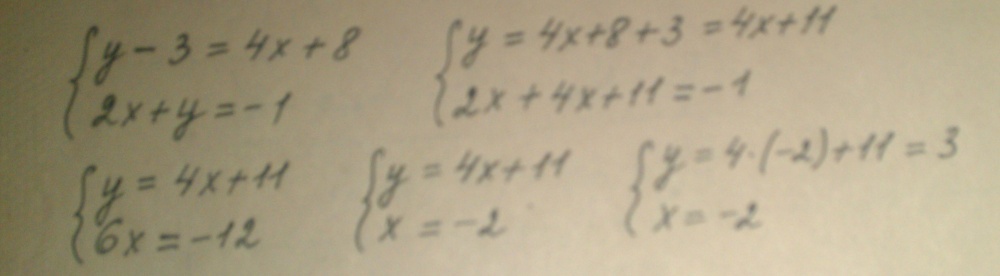 { y - 3 = 4x + 8
2x + y = -1
{ y = 4x + 8 + 3 = 4x + 11
2x + 4x + 11 = -1
{ y = 4x + 11
6x = -12
{ y = 4x + 11
x = -2
{ y = 4 · (-2) + 11 = 3
x = -2